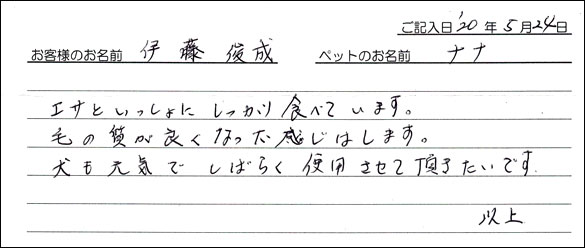 ご記入日'20年5月24日
お客様のお名前 伊藤 俊成 ペットのお名前 ナナ
エサといっしょに しっかり食べています。
毛の質が良くなった感じはします。
犬も元気で しばらく使用させて頂きたいです.
以上